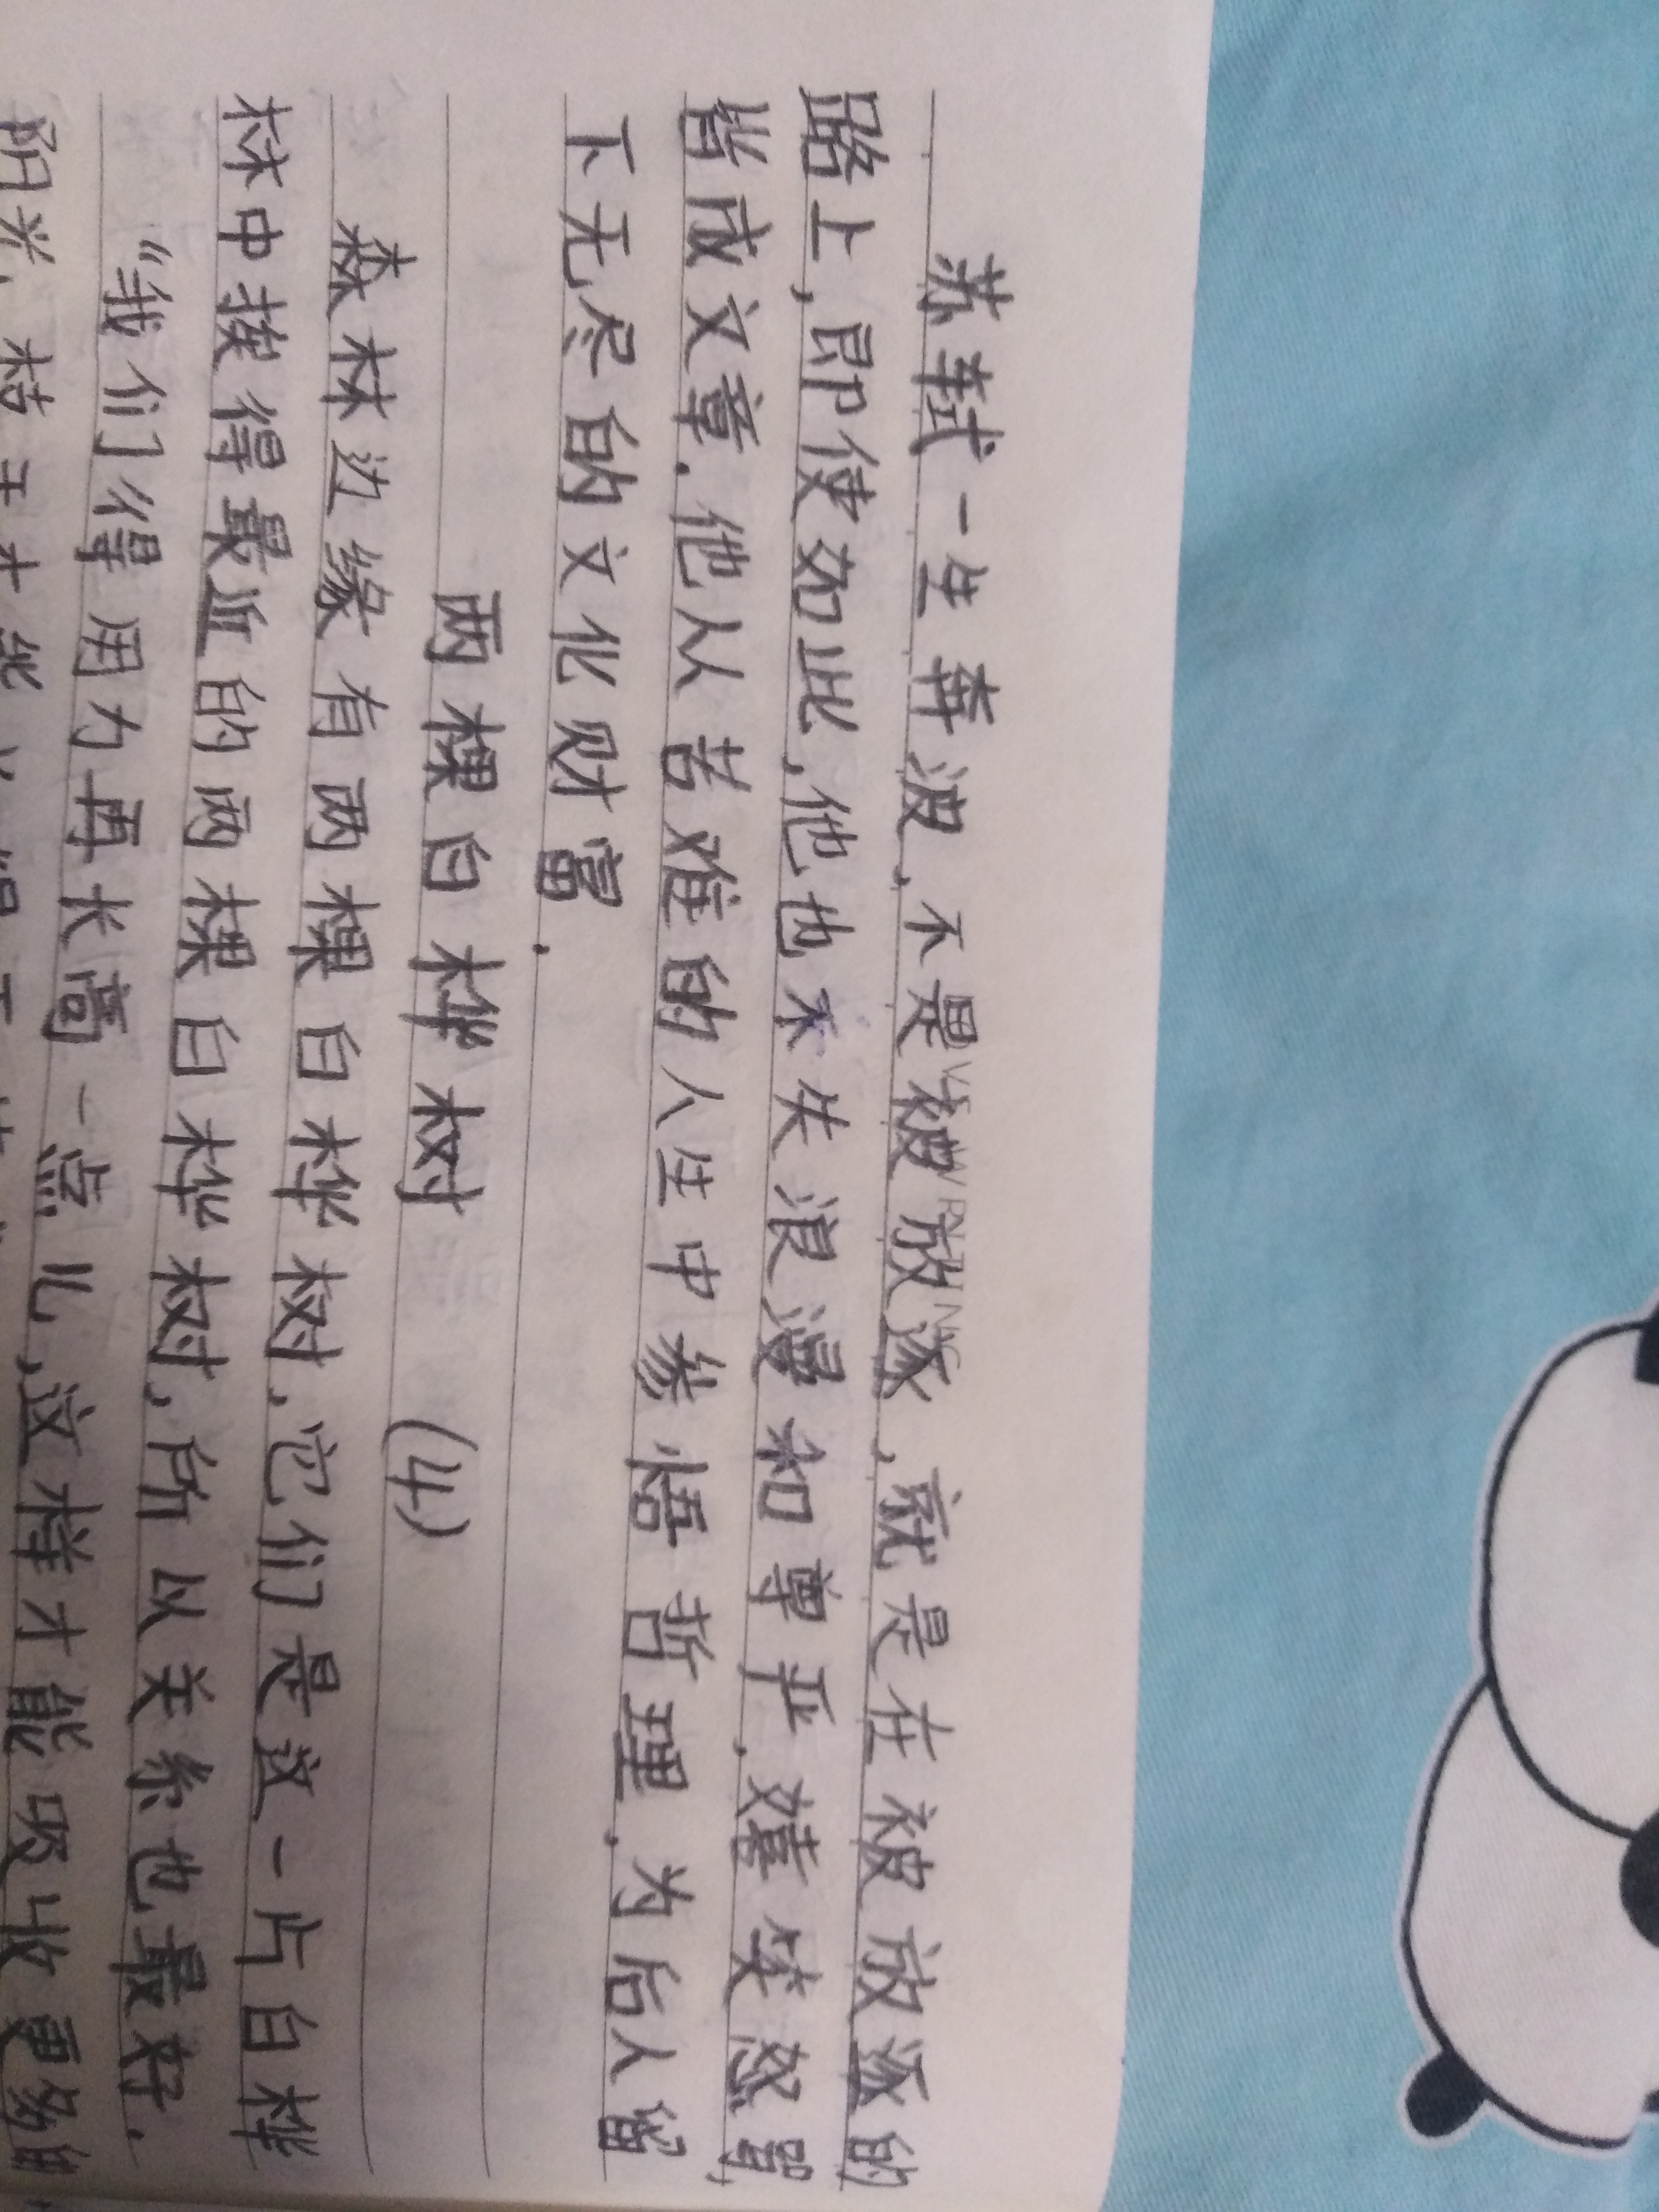 苏轼一生奔波，不是被放逐，就是在被放逐的
路上，即使如此，他也不失浪漫和尊严，嬉笑怒骂，
皆成文章．他从苦难的人生中参悟哲理，为后人留
下无尽的文化财富．
两棵白桦树 (4)
森林边缘有两棵白桦树，它们是这一片白桦
林中挨得最近的两棵白桦树，所以关系也最好．
“我们得用力再长高一点儿，这样才能吸收更多的
阳光，